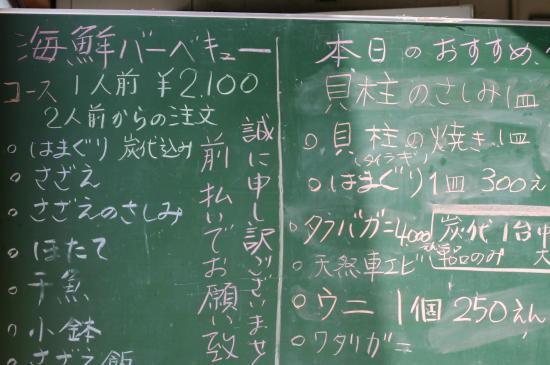 海鮮バーベキュー
コース 1人前 ¥2,100
2人前からの注文
はまぐり 炭代込み
さざえ
さざえのさしみ
ほたて
干魚
小鉢
さざえ飯
誠に申し訳ございませ
前払いでお願い致
本日のおすすめ
貝柱のさしみ1皿
貝柱の焼き1皿
(タイラギ)
はまぐり1皿 300え
タラバガニ4000
天然車エビ
炭代1台
単品のみ
ウニ 1個 250えん
ワタリガニ